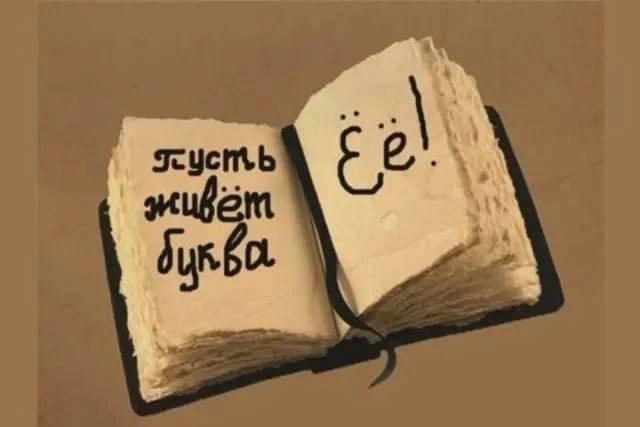 пусть
живёт
буква
Ёё!